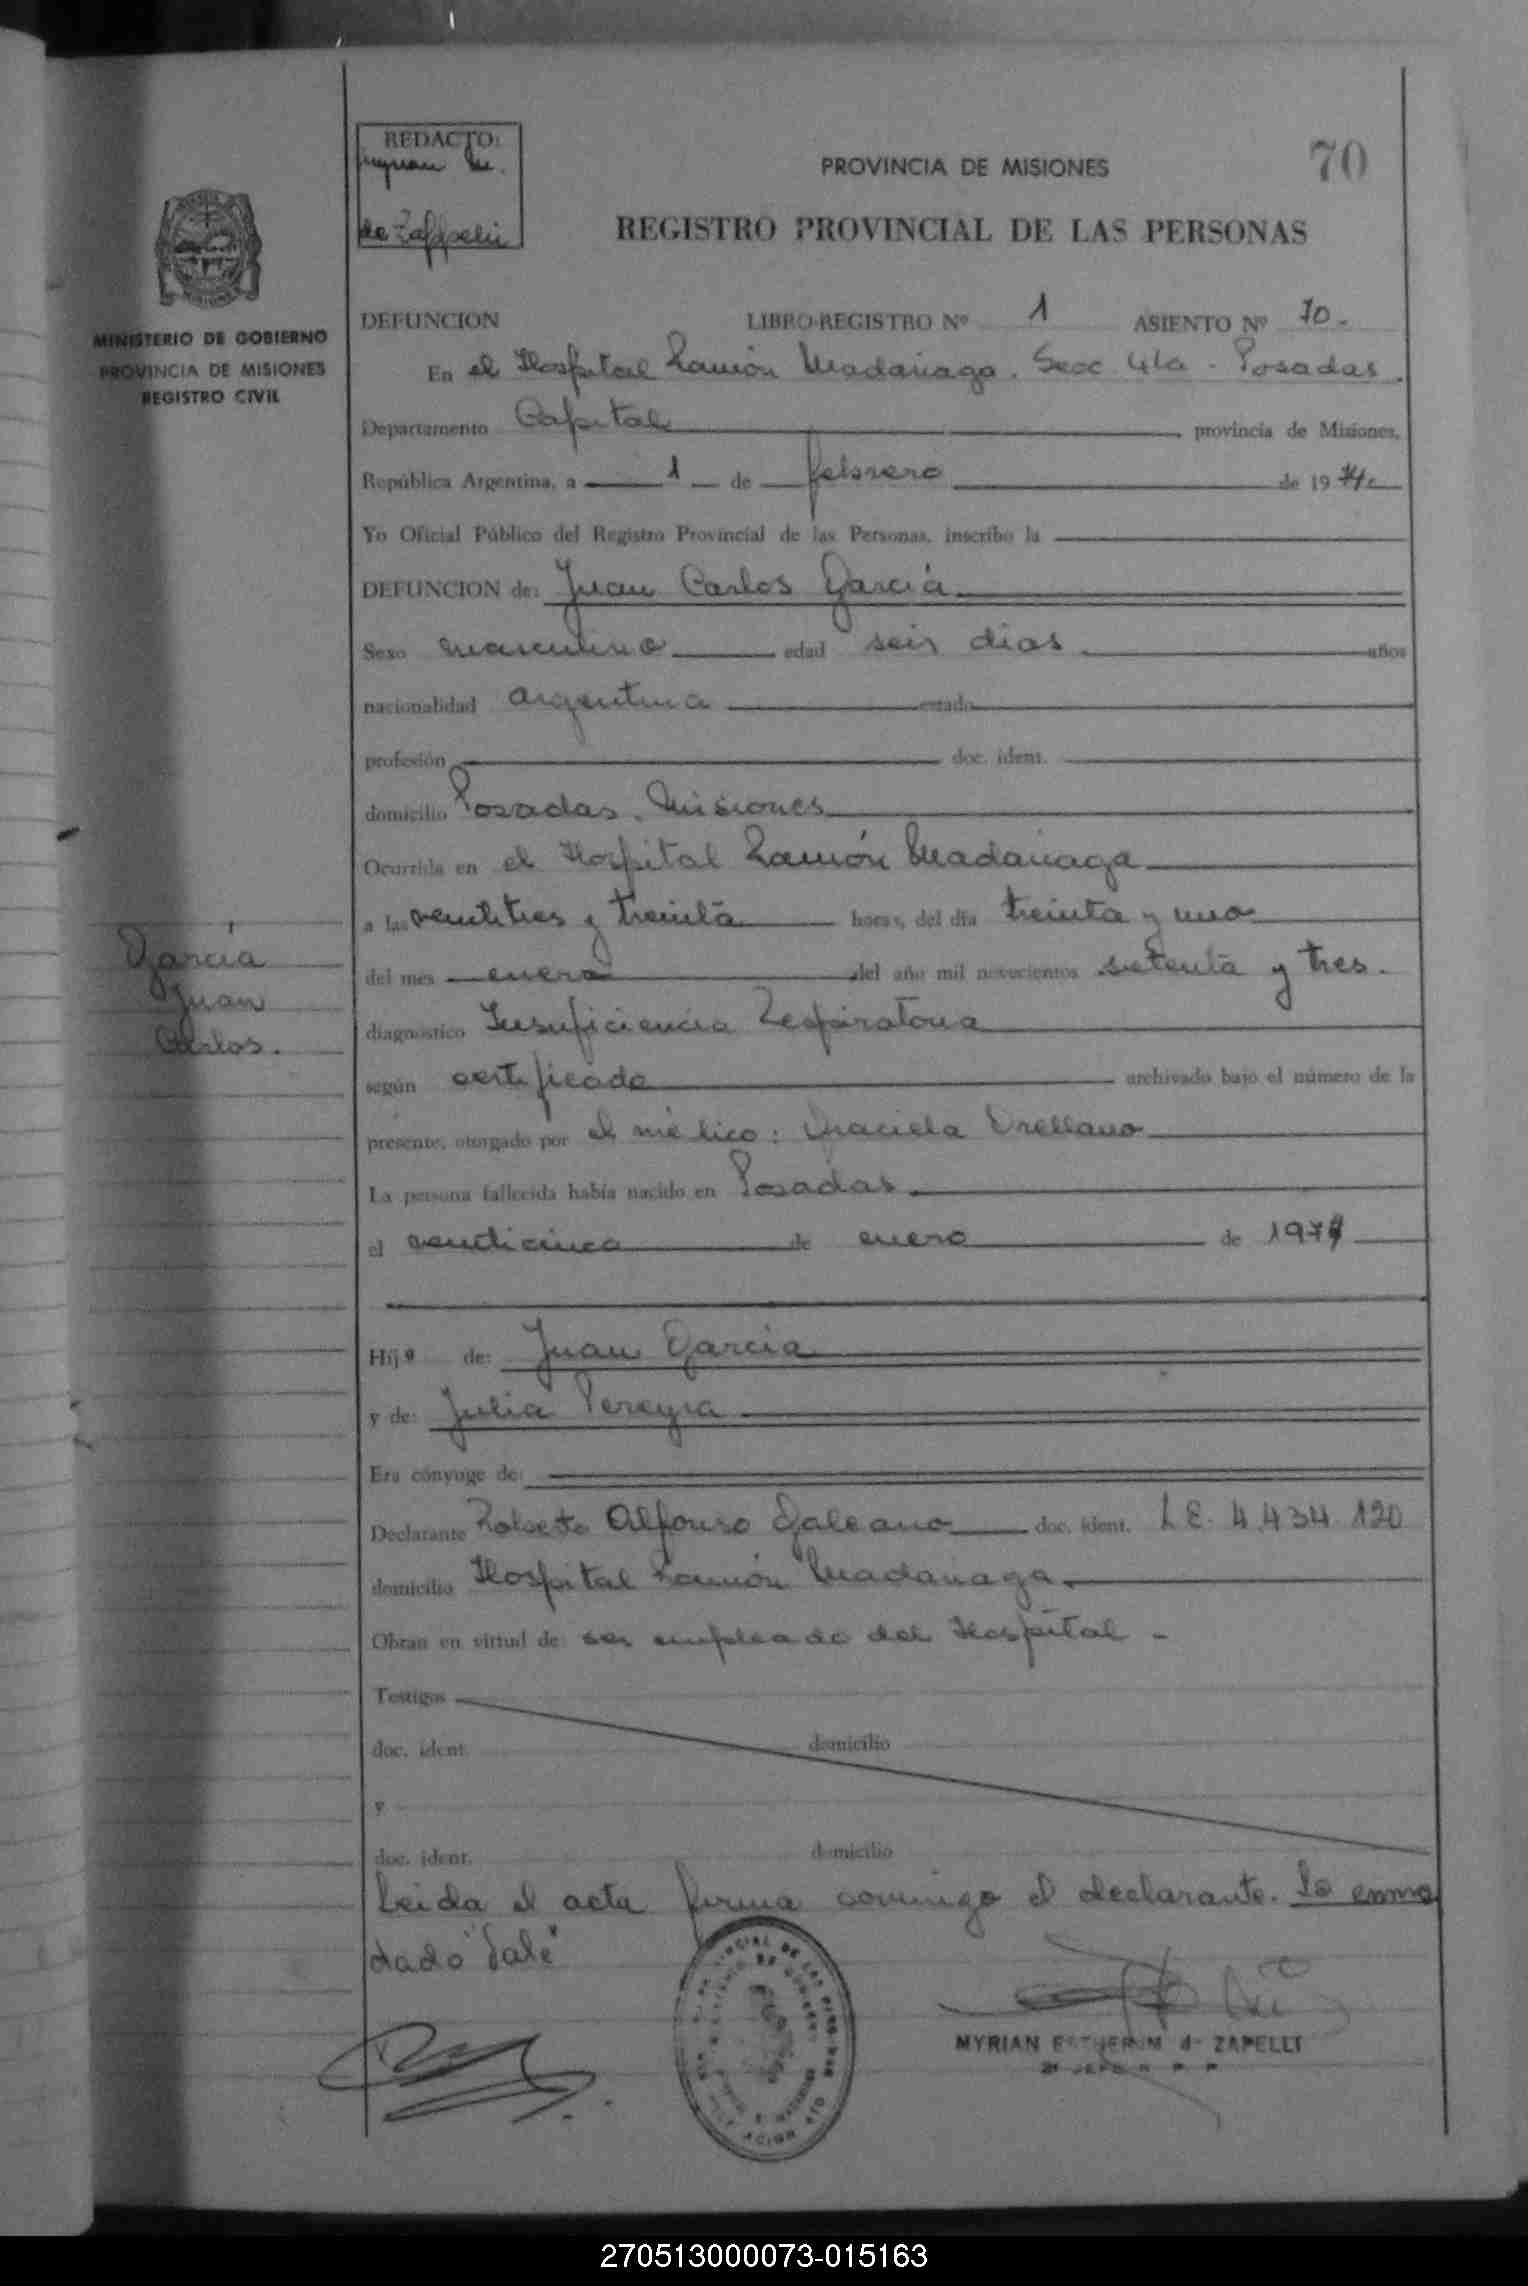 REDACTO:
Myrian M.
de Zappelli
PROVINCIA DE MISIONES
70
REGISTRO PROVINCIAL DE LAS PERSONAS
MINISTERIO DE GOBIERNO
PROVINCIA DE MISIONES
REGISTRO CIVIL
DEFUNCION LIBRO-REGISTRO Nº 1 ASIENTO Nº 70.-
En el Hospital Ramón Madariaga. Secc 4ta - Posadas.
Departamento Capital provincia de Misiones,
República Argentina, a 1 de febrero de 1974
Yo Oficial Público del Registro Provincial de las Personas, inscribo la
DEFUNCION de: Juan Carlos García
Sexo masculino edad seis días años
nacionalidad argentina estado
profesión doc. ident.
domicilio Posadas. Misiones
Ocurrida en el Hospital Ramón Madariaga
a las veintitres y treinta horas, del día treinta y uno
García
Juan
Carlos.
del mes enero del año mil novecientos setenta y tres.
diagnóstico Insuficiencia Respiratoria
según certificado archivado bajo el número de la
presente, otorgado por el médico: Graciela Orellano
La persona fallecida había nacido en Posadas
el veinticinco de enero de 1974
Hijo de: Juan García
y de: Julia Pereyra
Era cónyuge de:
Declarante Roberto Alfonso Galeano doc. ident. L.E. 4.434.120
domicilio Hospital Ramón Madariaga
Obran en virtud de: ser empleado del Hospital -
Testigos
doc. ident. domicilio
y
doc. ident. domicilio
Leida el acta firma conmigo el declarante. Lo enmen
dado "Vale"
MYRIAN ESTHER M de ZAPELLI
270513000073-015163